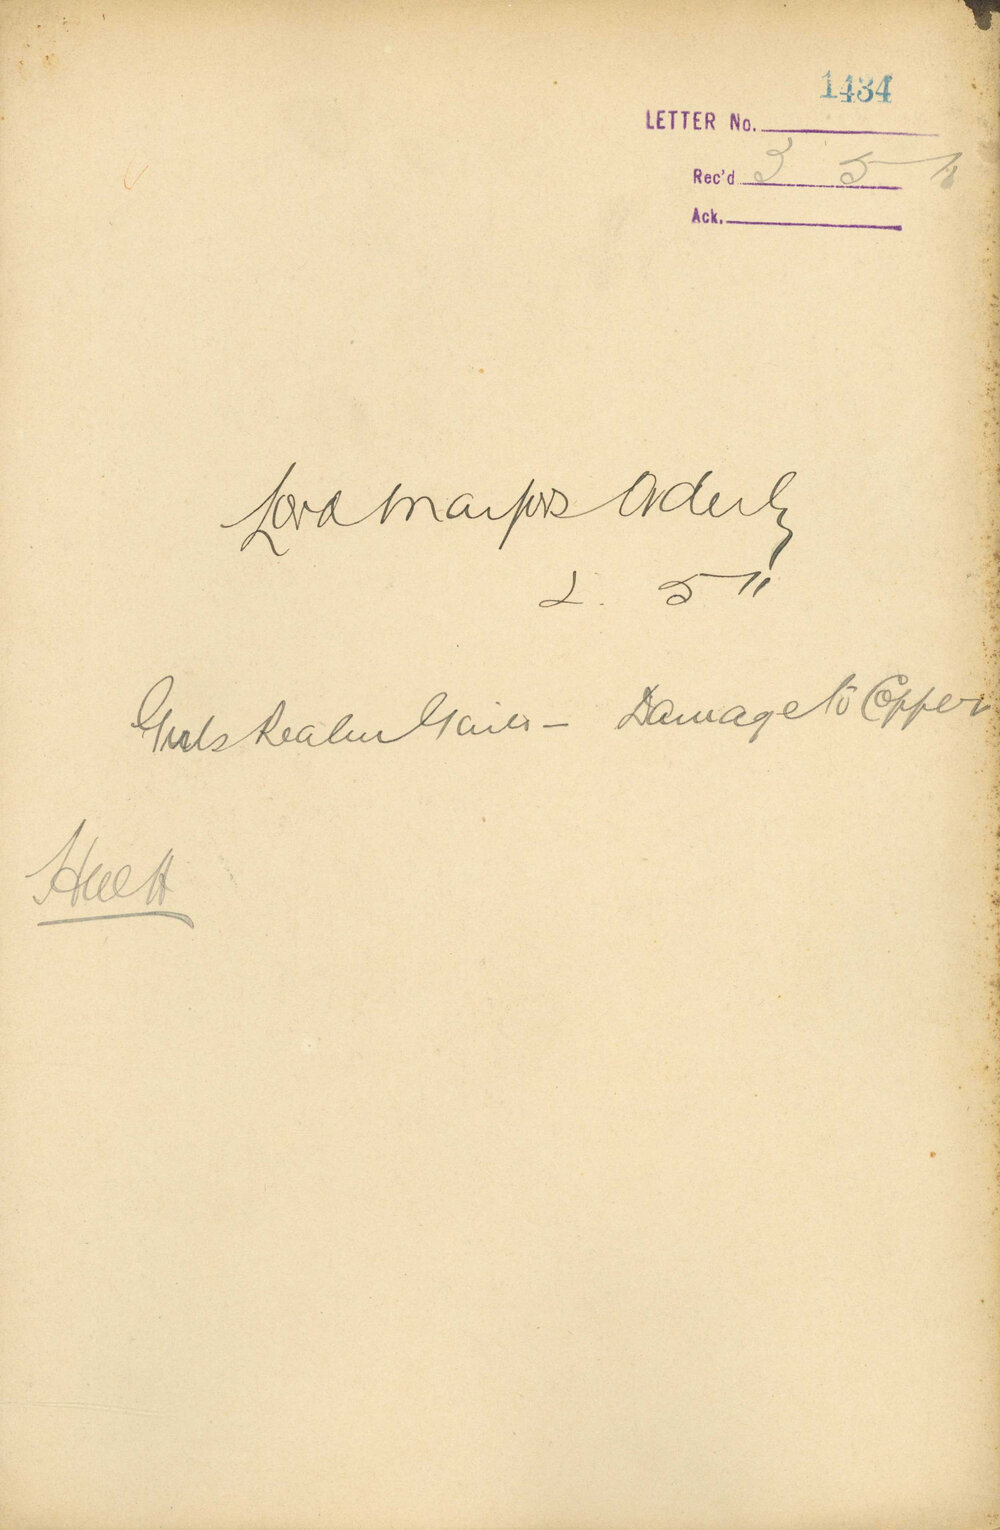 1434
LETTER No.
Rec'd 3 5 11
Ack.
Lord Mayors Orderly
2. 5 11
Girls Realm — Damage to Copper